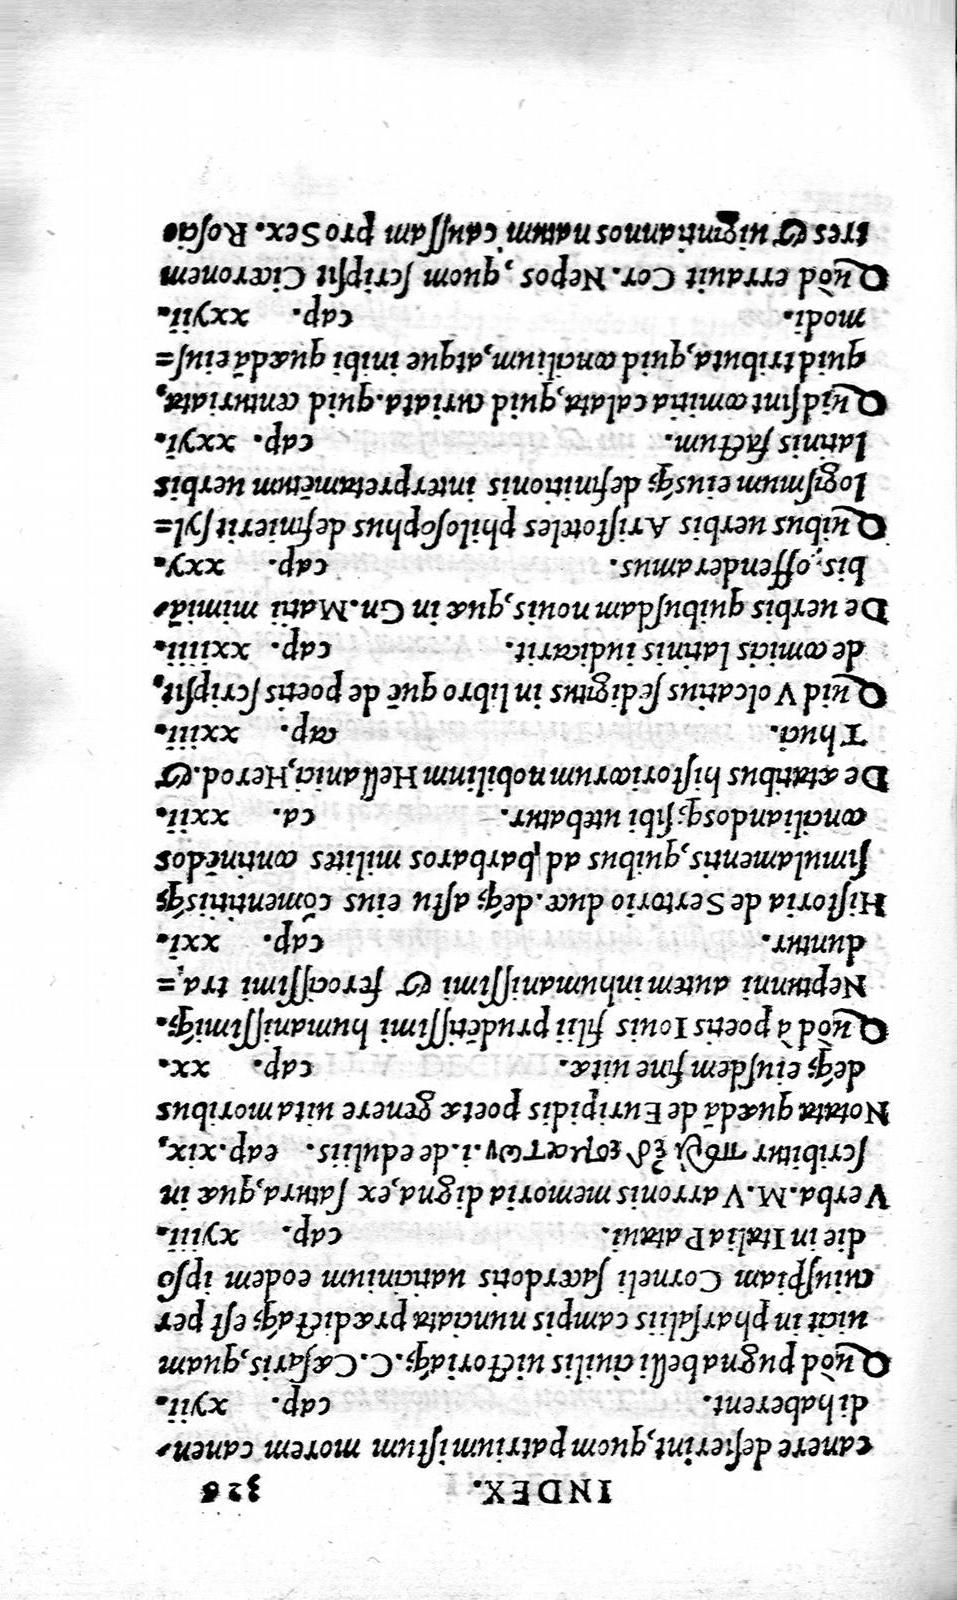 INDEX. 326
canere desierint, quom patrium istum morem canen-
di haberent. cap. xvii.
Quòd pugna belli ciuilis uictoriaq́; C. Cæsaris, quam
uicit in pharsaliis campis nunciata prædictaq́; est per
cuiuspiam Corneli sacerdotis uaticinium eodem ipso
die in Italia Pataui. cap. xviii.
Verba. M. Varronis memoria digna, ex satura, quæ in
scribitur ἐδεσμάτων. i. de eduliis. cap. xix.
Notata quædā de Euripidis poetæ genere uita moribus
deq́; eiusdem fine uitæ. cap. xx.
Quòd à poetis Iouis filii prudētissimi humanissimiq́;.
Neptunni autem inhumanissimi & ferocissimi tra=
duntur. cap. xxi.
Historia de Sertorio duce. deq́; astu eius cōmentitiisq́;
simulamentis, quibus ad barbaros milites continēdos
conciliandosq; sibi utebatur. ca. xxii.
De ætatibus historicorum nobilium Hellanici, Herod. &
Thuci. cap. xxiii.
Quid Volcatius sedigitus in libro quē de poetis scripsit,
de comicis latinis iudicarit. cap. xxiiii.
De uerbis quibusdam nouis, quæ in Gn. Matii mimiā-
bis offenderamus. cap. xxv.
Quibus uerbis Aristoteles philosophus definierit syl=
logismum eiusq́; definitionis interpretamētum uerbis
latinis factum. cap. xxvi.
Quid sint comitia calata, quid curiata. quid centuriata,
quid tributa, quid concilium, atque inibi quædā eius=
modi. cap. xxvii.
Quòd errauit Cor. Nepos, quom scripsit Ciceronem
tres & uiginti annos natum caussam pro Sex. Roscio